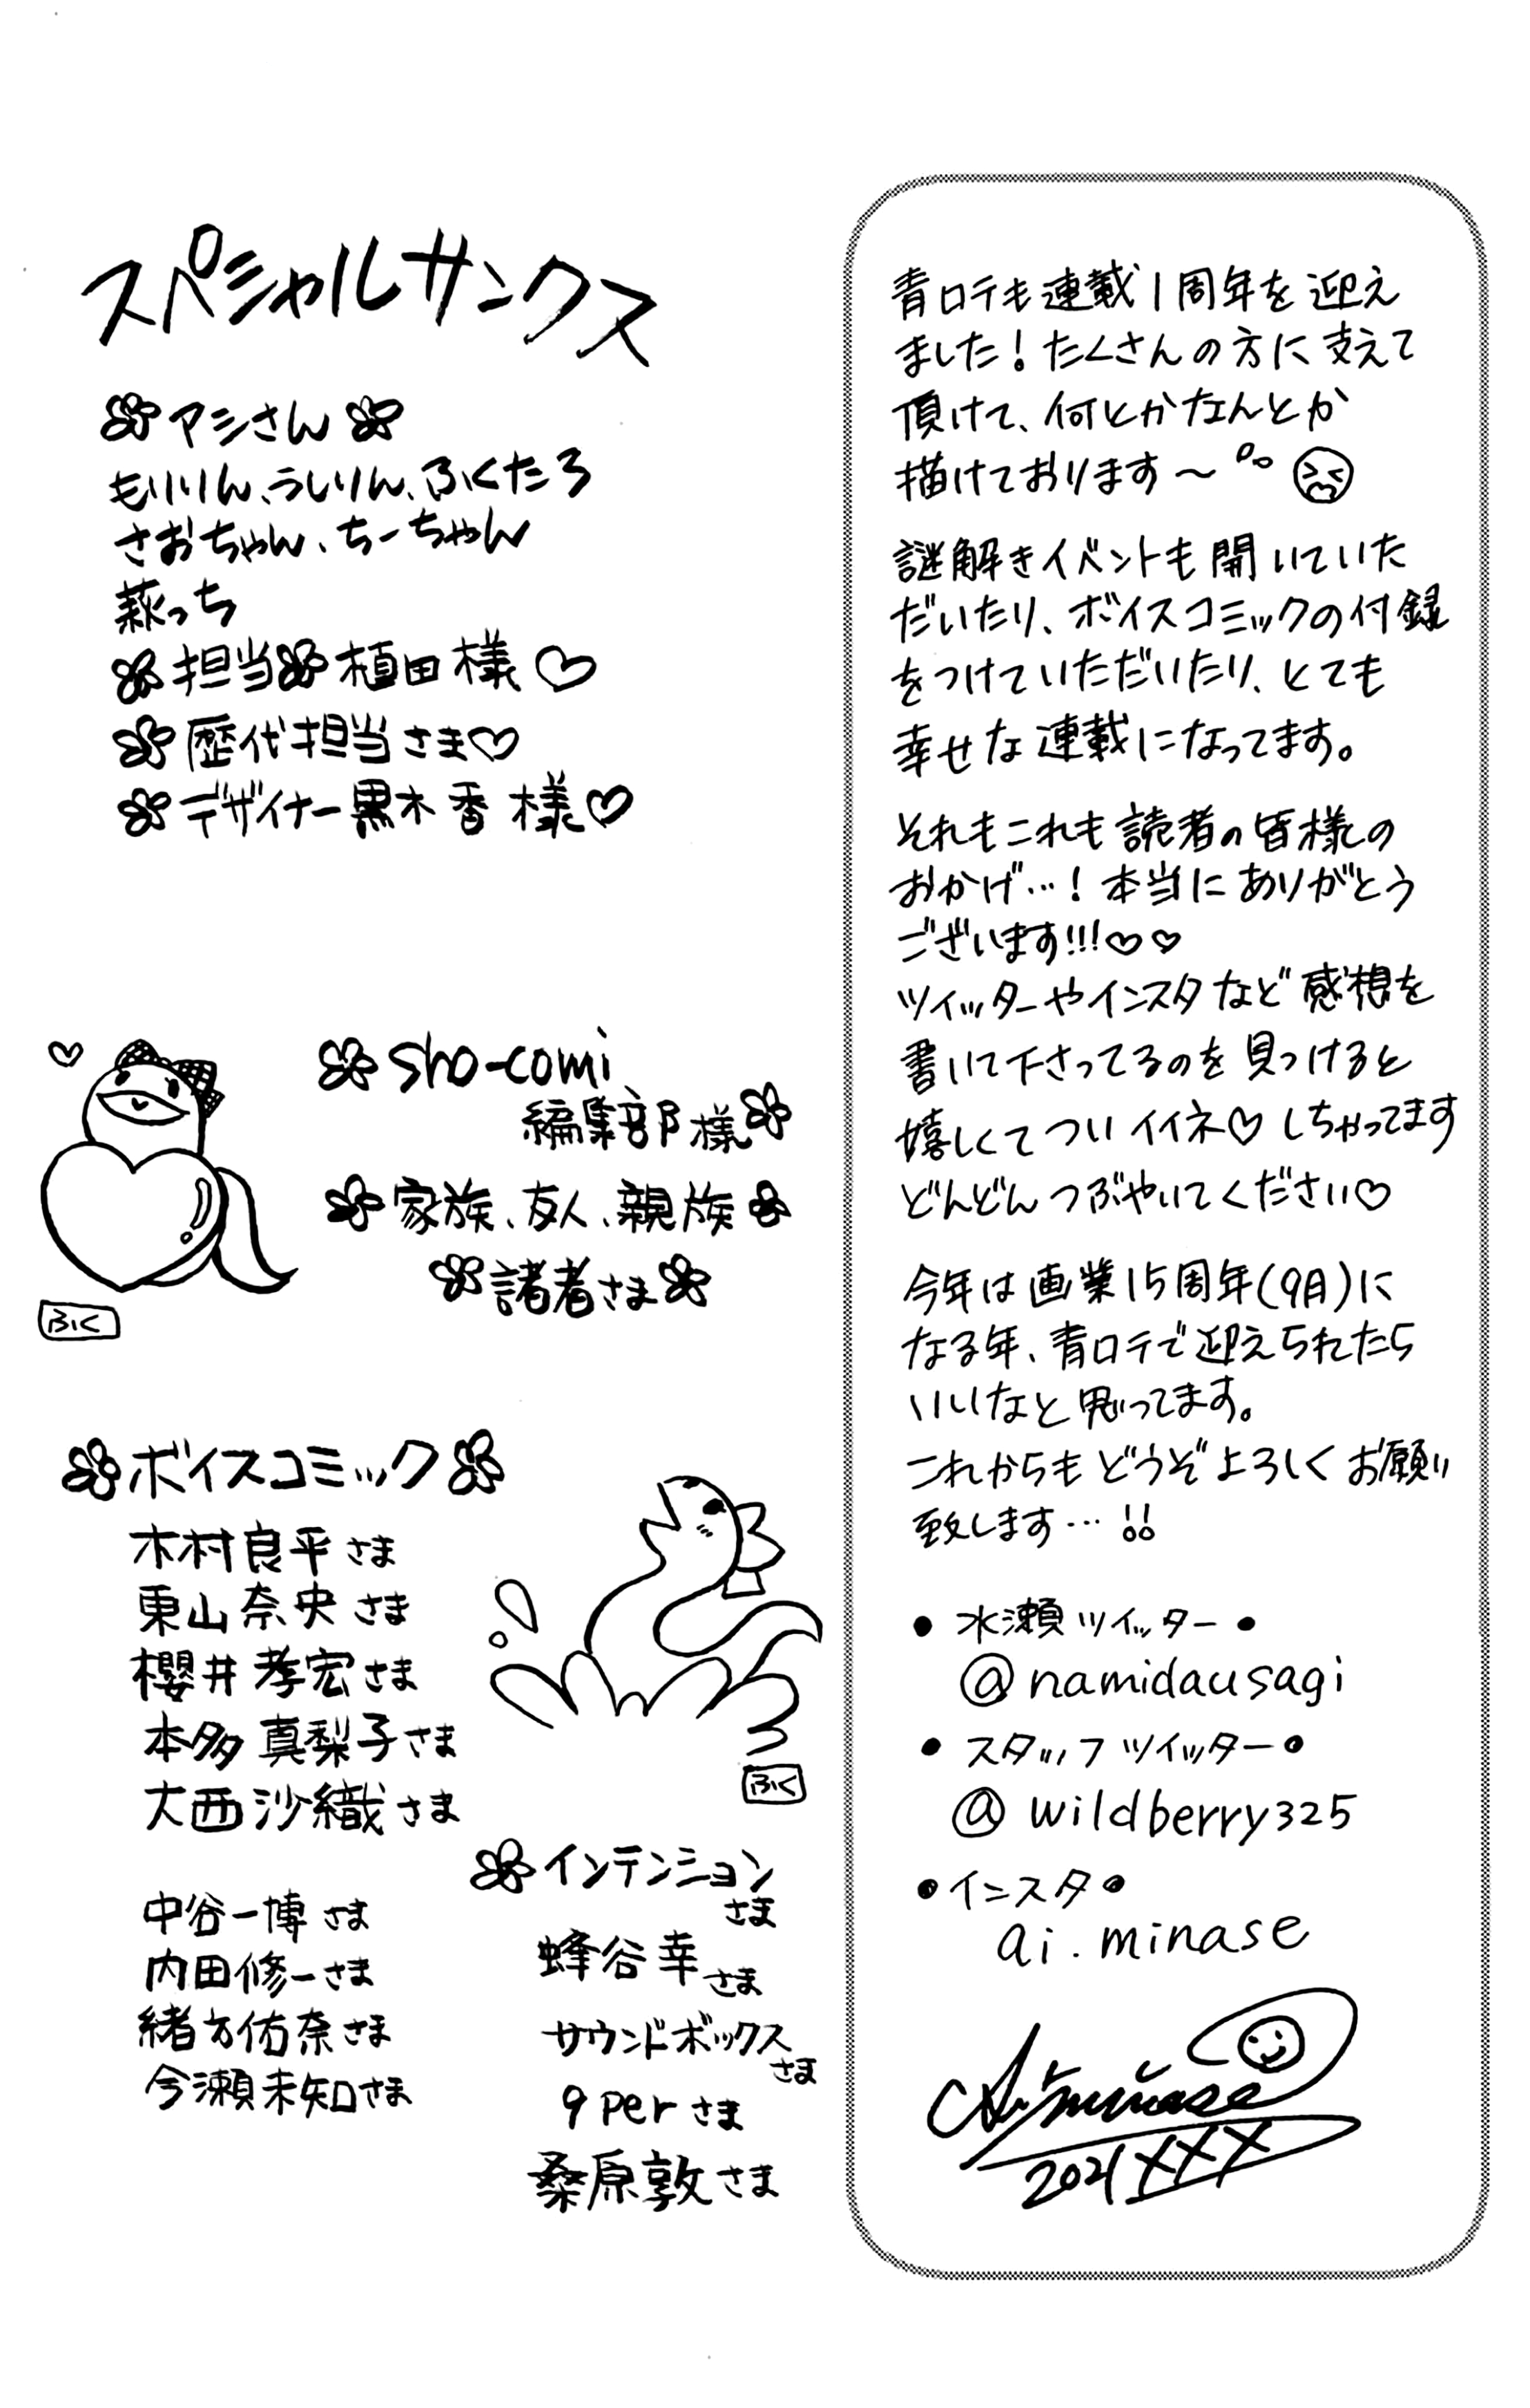 スペシャルサンクス
アシさん
もりりん、うしりん、ふくたろ
さおちゃん、ちーちゃん
萩っち
担当 植田様♡
歴代担当さま♡
デザイナー黒木香様♡
sho-comi
編集部様
家族、友人、親族
諸者さま
ふく
ボイスコミック
木村良平さま
東山奈央さま
櫻井孝宏さま
本多真梨子さま
大西沙織さま
ふく
中谷一博さま
内田修一さま
緒方佑奈さま
今瀬未知さま
インテンション
さま
蜂谷幸さま
サウンドボックス
さま
9perさま
桑原敦さま
青ロテも連載1周年を迎え
ました!たくさんの方に支えて
頂けて、何とかなんとか
描けております〜
謎解きイベントも開いていた
だいたり、ボイスコミックの付録
をつけていただいたり、とても
幸せな連載になってます。
それもこれも読者の皆様の
おかげ…!本当にありがとう
ございます!!!♡♡
ツイッターやインスタなど感想を
書いて下さってるのを見つけると
嬉しくてついイイネ♡しちゃってます
どんどんつぶやいてください♡
今年は画業15周年(9月)に
なる年、青ロテで迎えられたら
いいなと思ってます。
これからもどうぞよろしくお願い
致します…!!
●水瀬ツイッター●
@namidausagi
●スタッフツイッター●
@wildberry325
●インスタ●
ai.minase
Ai minase
2021XXX